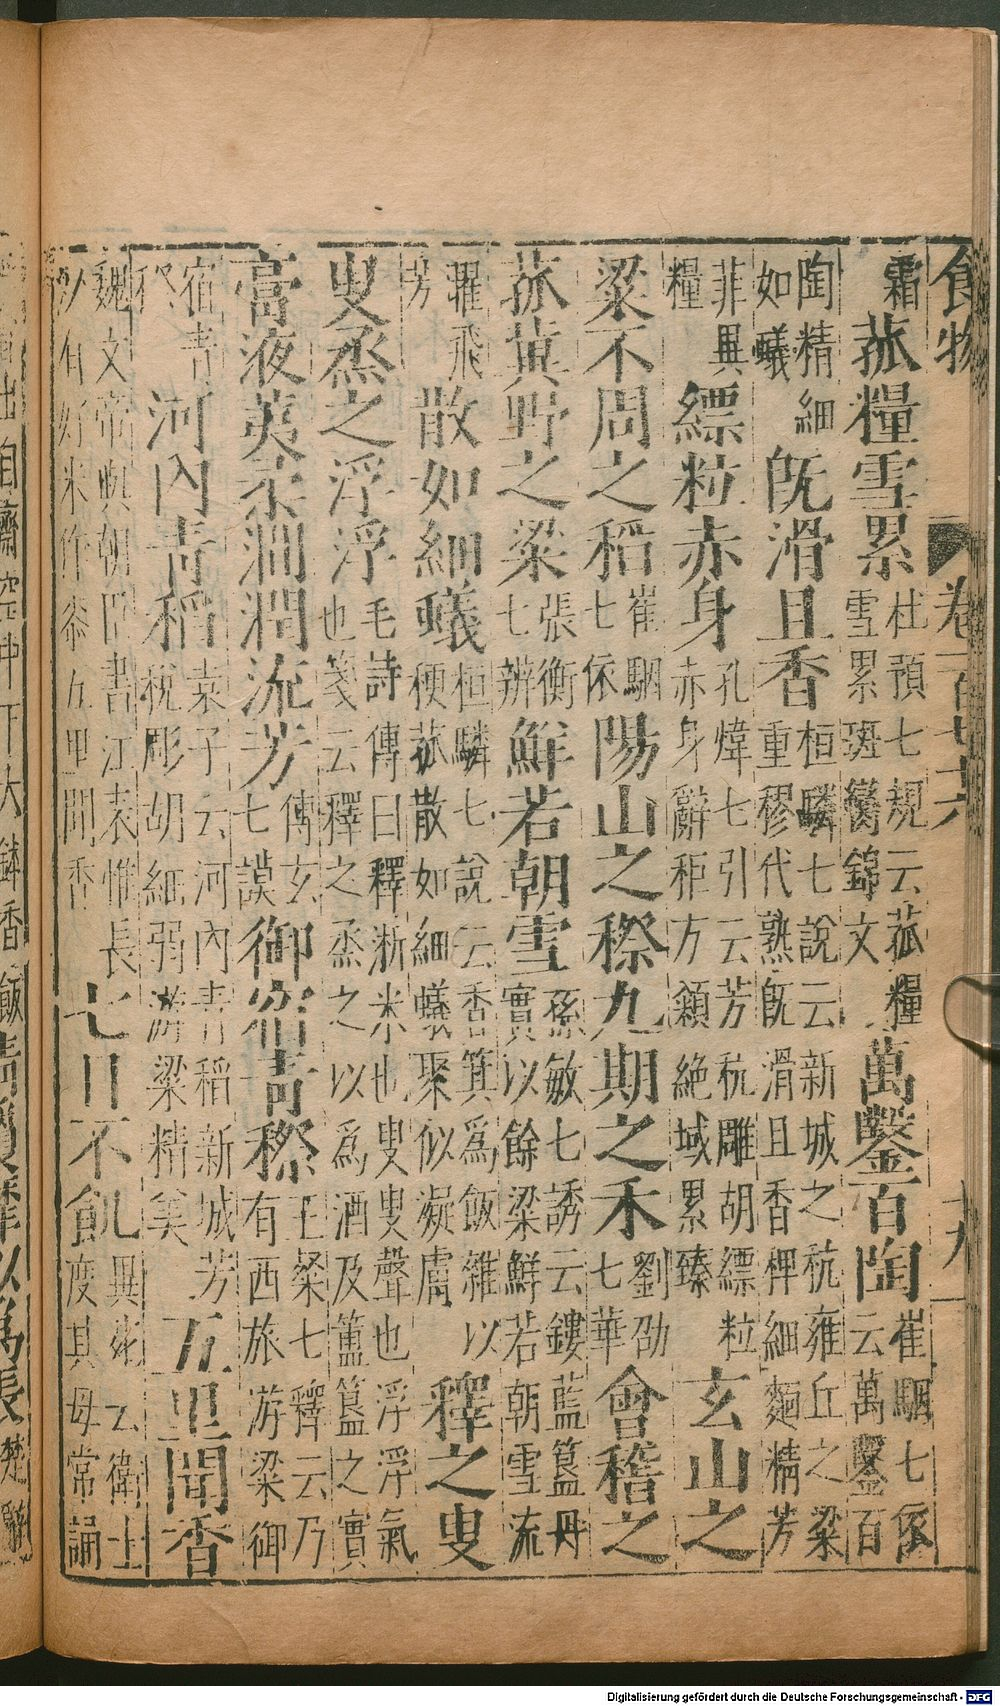 食物 卷一百 十九
霜
菰糧雪累
杜預七規云菰糧
雪累班臠錦文
萬鑿百陶
崔駰七依
云萬鑿百
陶精細
如蟻
既滑且香
桓麟七說云新城之秔雍丘之粱
重穋代熟既滑且香稗細麵精芳
菲異
糧
縹粒赤身
孔煒七引云芳秔雕胡縹粒
赤身辭秬方穎絕域累臻
玄山之
粱不周之稻
崔駰
七依
陽山之穄九期之禾
劉劭
七華
會稽之
菰黃野之粱
張衡
七辨
鮮若朝雪
孫敏七誘云鏤藍簋丹
實以餘粱鮮若朝雪流
濯飛
芳
散如細蟻
桓麟七說云香箕為飯雜以
粳菰散如細蟻聚似凝膚
釋之叟
叟烝之浮浮
毛詩傳曰釋淅米也叟叟聲也浮浮氣
也箋云釋之烝之以為酒及簠簋之實
膏液荑柔澗潤流芳
傅玄
七謨
御宿青穄
王粲七釋云乃
有西旅游粱御
宿青
穄
河內青稻
袁子云河內青稻新城芳
秔彫胡細弱游粱精美
五里聞香
魏文帝與朝臣書江表惟長
沙有好米作黍五里聞香
七日不飢
異苑云衛士
度其母常誦
出自齋空中下大鉢香飯
Digitalisierung gefördert durch die Deutsche Forschungsgemeinschaft - DFG